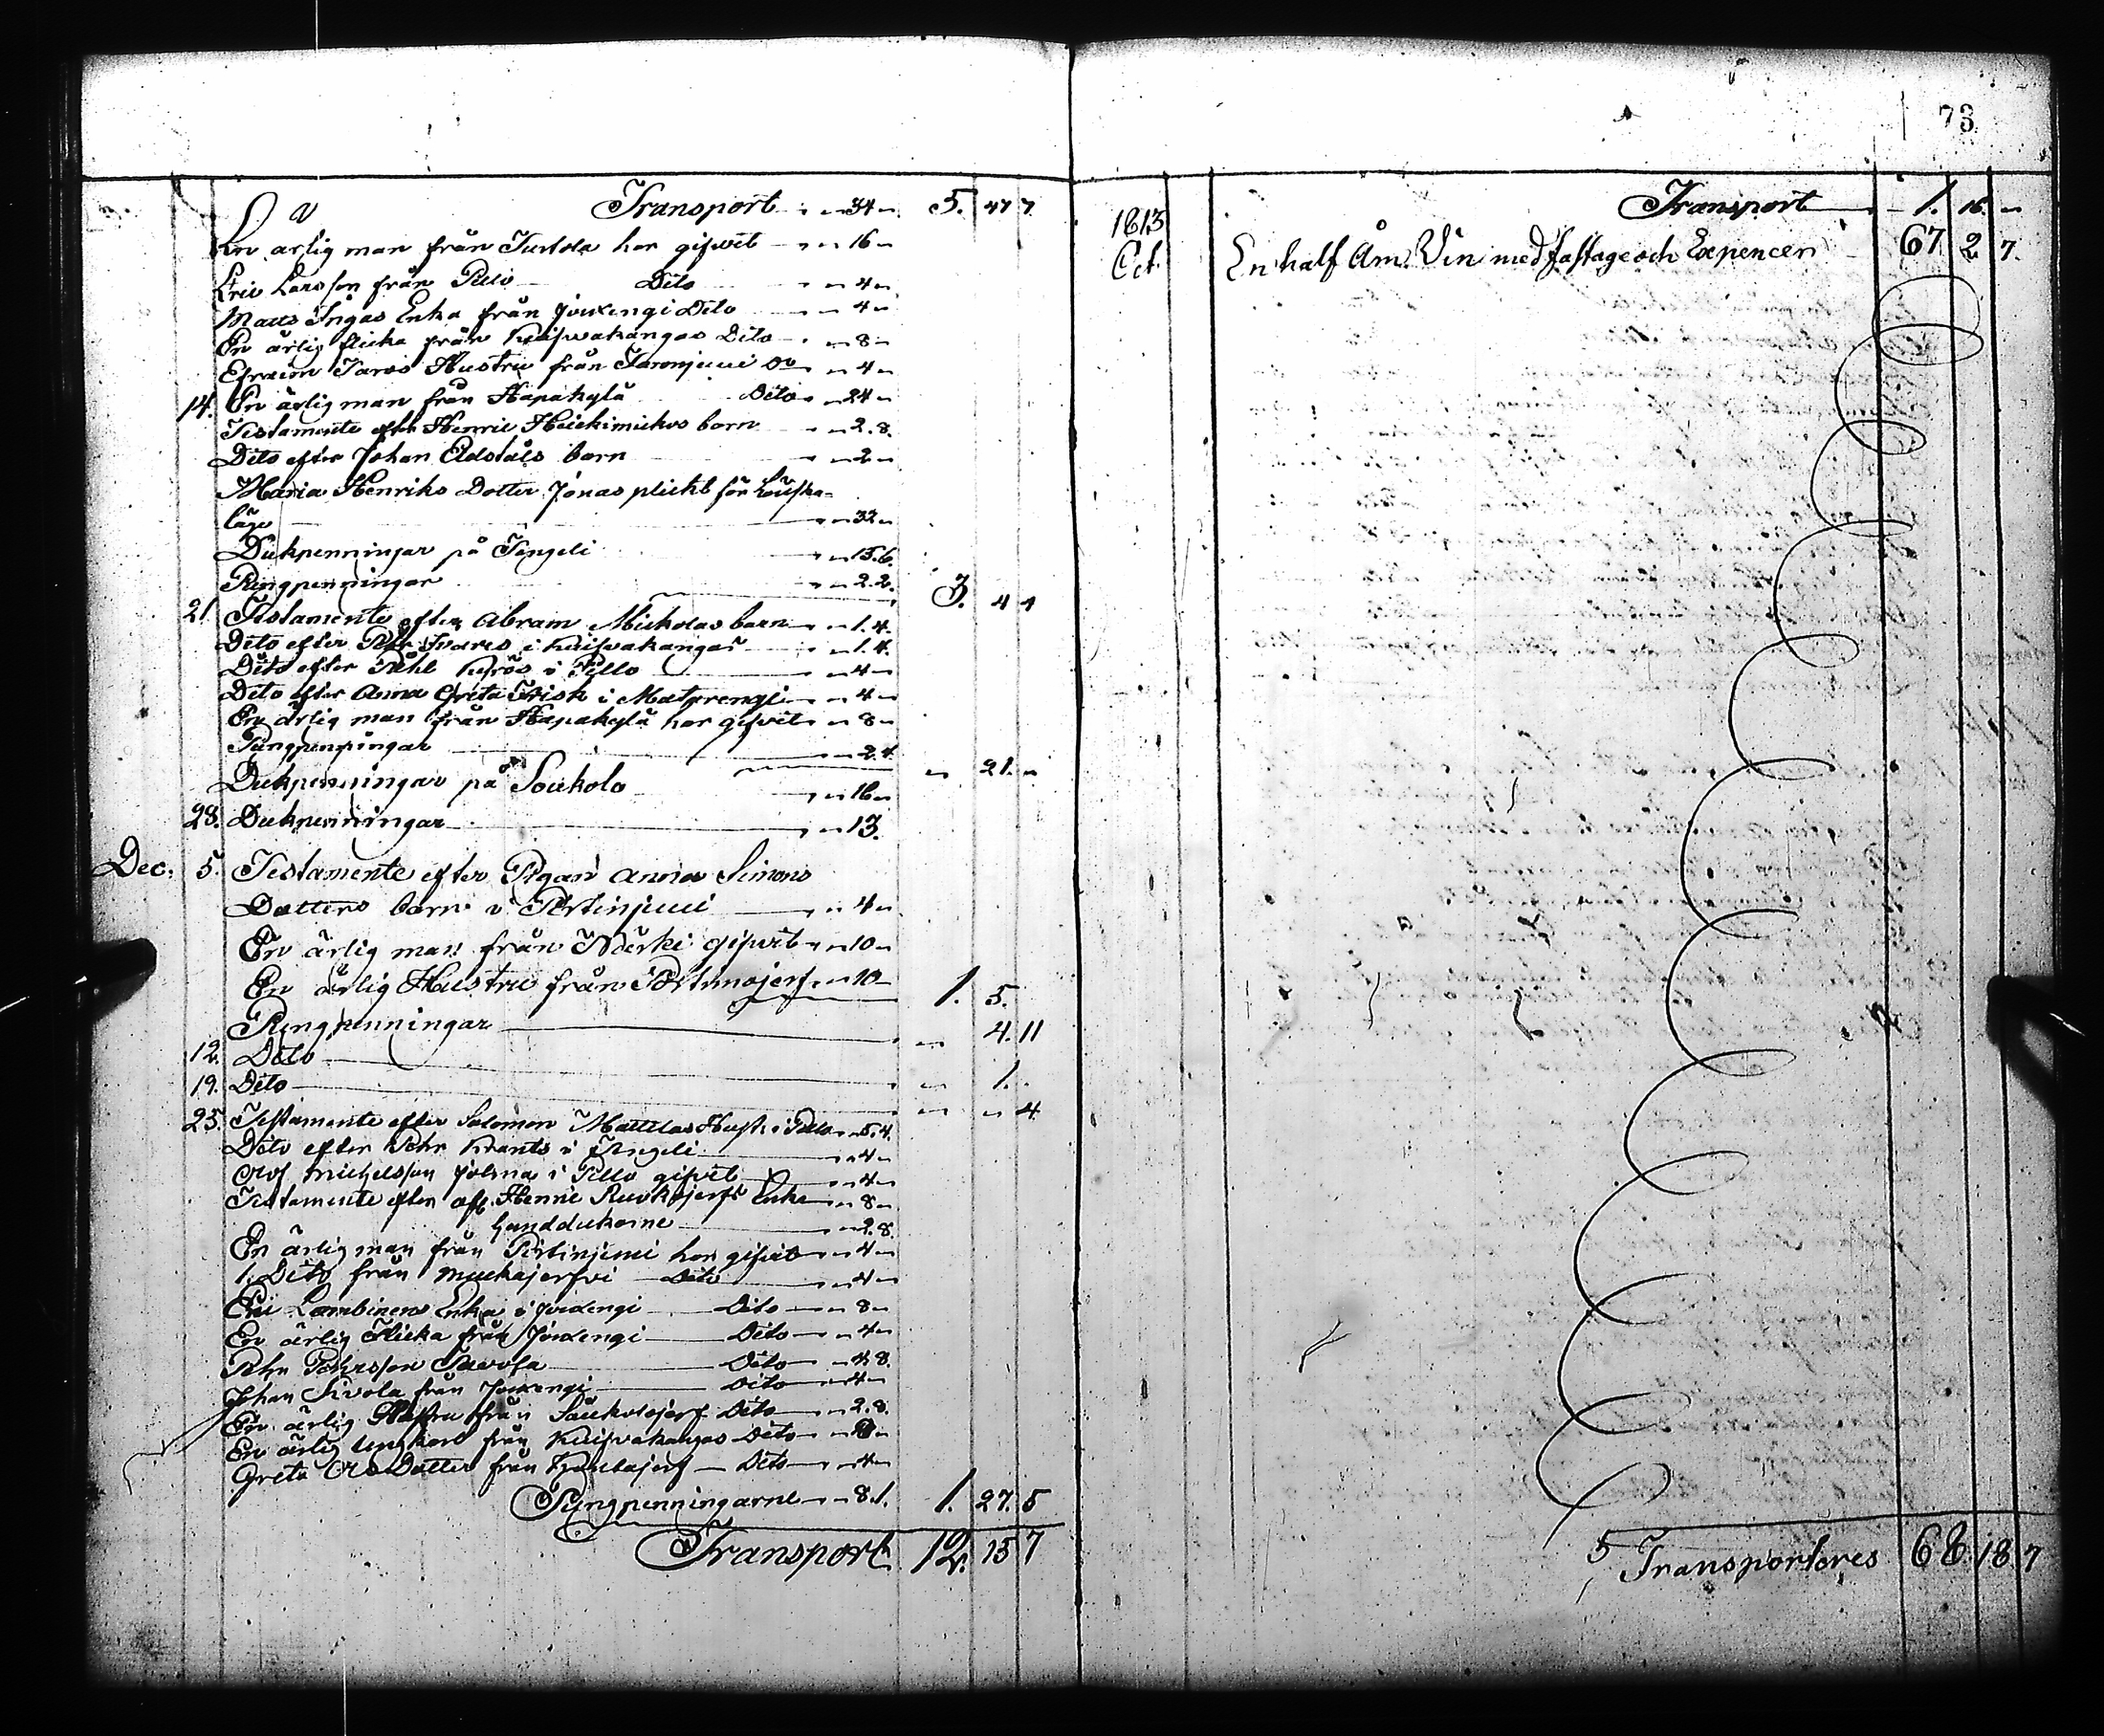 Transport 34 5. 47 7
En ärlig man från Turtola har gifvit 16
Eric Larsson från Pello Dito 4
Matts Ingas Enka från Jouxengi Dito 4
En ärlig flicka från Kuifvakangas Dito 8
Efraim Taros Hustru från Taronjemi Do 4
14. En ärlig man från Hapakylä Dito 24
Testamente efter Henric Heickimickos barn 2.8.
Dito efter Johan barn 2
Maria Henriks Dotter Jonas plicht för
läge 32
Dukpenningar på Tengeli 15.6.
Pungpenningar 2.2. 3. 4 1
21 Testamente efter Abram Mickolas barn 1.4.
Dito efter i Kuifvakangas 1.4.
Dito efter i Pello 4
Dito efter Anna Greta Frisk i Matarengi 4
En ärlig man från Hapakylä har gifvit 8
Pungpenningar 2.4 21.
Dukpenningar på Soukolo 16
28. Dukpenningar 13.
Dec. 5. Testamente efter Pigan Anna Simons
Dotters barn i Pertinjemi 4
En ärlig man från Närki gifvit 10
En ärlig Hustru från Portimojerf 10 1. 5.
Pungpenningar 4. 11
12. Dito 1.
19. Dito 4
25. Testamente efter Salomon Mattilas Hust. i Pello 5.4.
Dito efter Pehr Krants i Tengeli 4
Olof Michelsson i Pello gifvit 4
Testamente efter afl. Henric Ruokojerfs Enka 8
handdukarne 2.8.
En ärlig man från Pertinjemi har gifvit 4
1 Dito från Muckajerfvi Dito 4
Lambinens Enka i Jouxengi Dito 8
En ärlig Flicka från Jouxengi Dito 4
Pehr Pehrsson Dito 4 8.
Johan Sivola från Jouxengi Dito 4
En ärlig Hustru från Soukolojerf Dito 2.8.
En ärlig ung karl från Kuifvakangas Dito
Greta Ols Dotter från Dito 4
Pungpenningarne 8.1. 1. 27. 5
Transport 12. 15 7
73
Transport 1. 16.
1813
Oct. En half Åm Vin med fastage och Expencer 67 2 7.
5 Transporteres 68 18 7